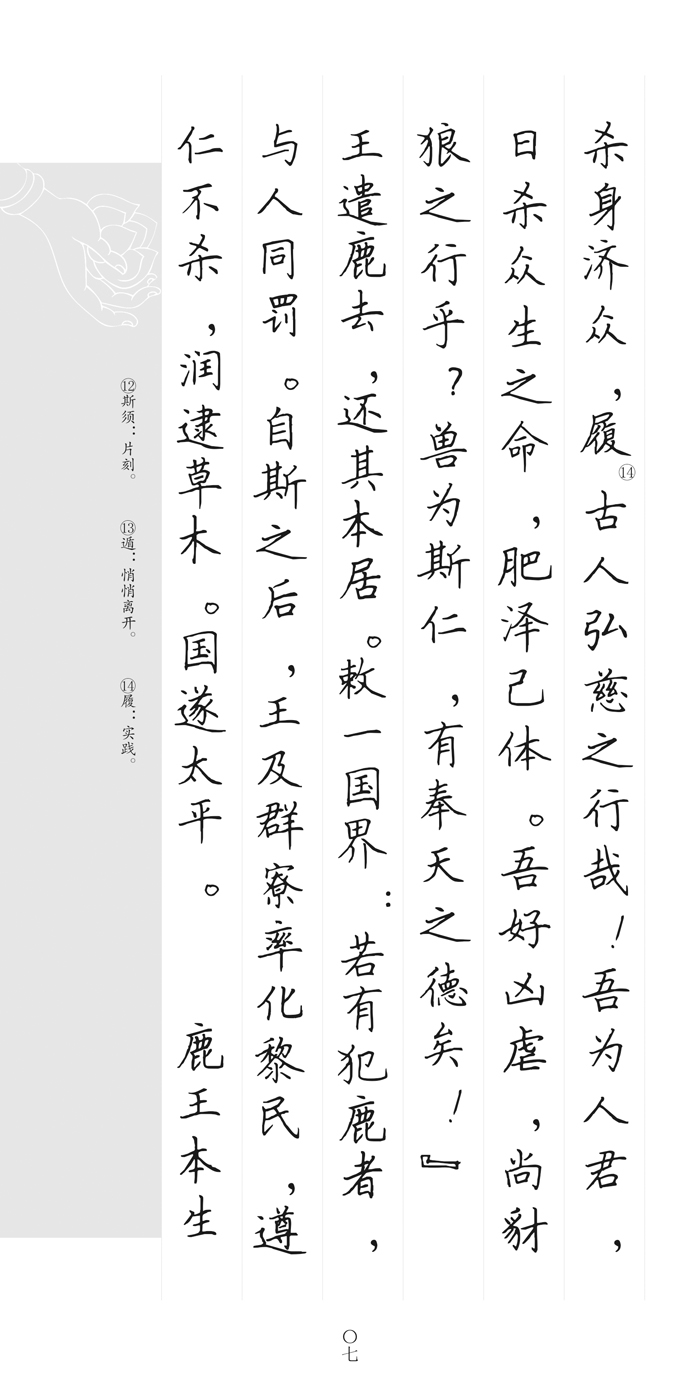 杀身济众，履⑭古人弘慈之行哉！吾为人君，
日杀众生之命，肥泽己体。吾好凶虐，尚豺
狼之行乎？兽为斯仁，有奉天之德矣！』
王遣鹿去，还其本居。敕一国界：若有犯鹿者，
与人同罚。自斯之后，王及群寮率化黎民，遵
仁不杀，润逮草木。国遂太平。 鹿王本生
⑫斯须：片刻。 ⑬遁：悄悄离开。 ⑭履：实践。
〇七